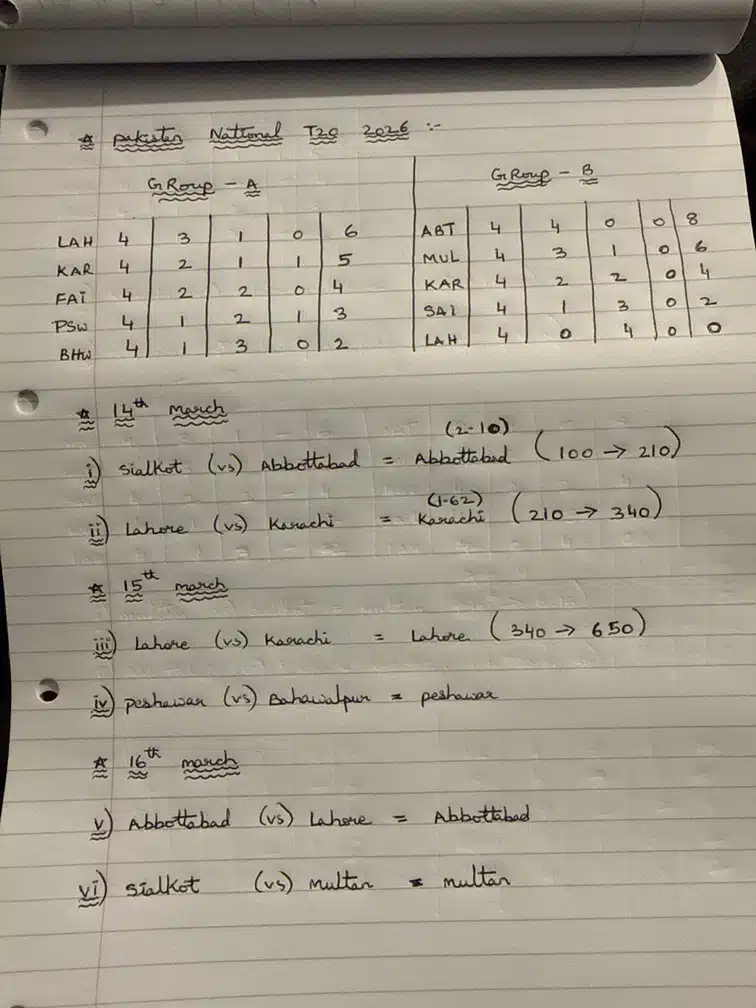 ☆ pakistan National T20 2026 :-
GRoup - A
LAH 4 3 1 0 6
KAR 4 2 1 1 5
FAI 4 2 2 0 4
PSW 4 1 2 1 3
BHW 4 1 3 0 2
GRoup - B
ABT 4 4 0 0 8
MUL 4 3 1 0 6
KAR 4 2 2 0 4
SAI 4 1 3 0 2
LAH 4 0 4 0 0
☆ 14th march
(2-10)
i) Sialkot (vs) Abbottabad = Abbottabad (100 → 210)
(1-62)
ii) Lahore (vs) Karachi = Karachi (210 → 340)
☆ 15th march
iii) Lahore (vs) Karachi = Lahore (340 → 650)
iv) peshawar (vs) Bahawalpur = peshawar
☆ 16th march
v) Abbottabad (vs) Lahore = Abbottabad
vi) Sialkot (vs) multan = multan